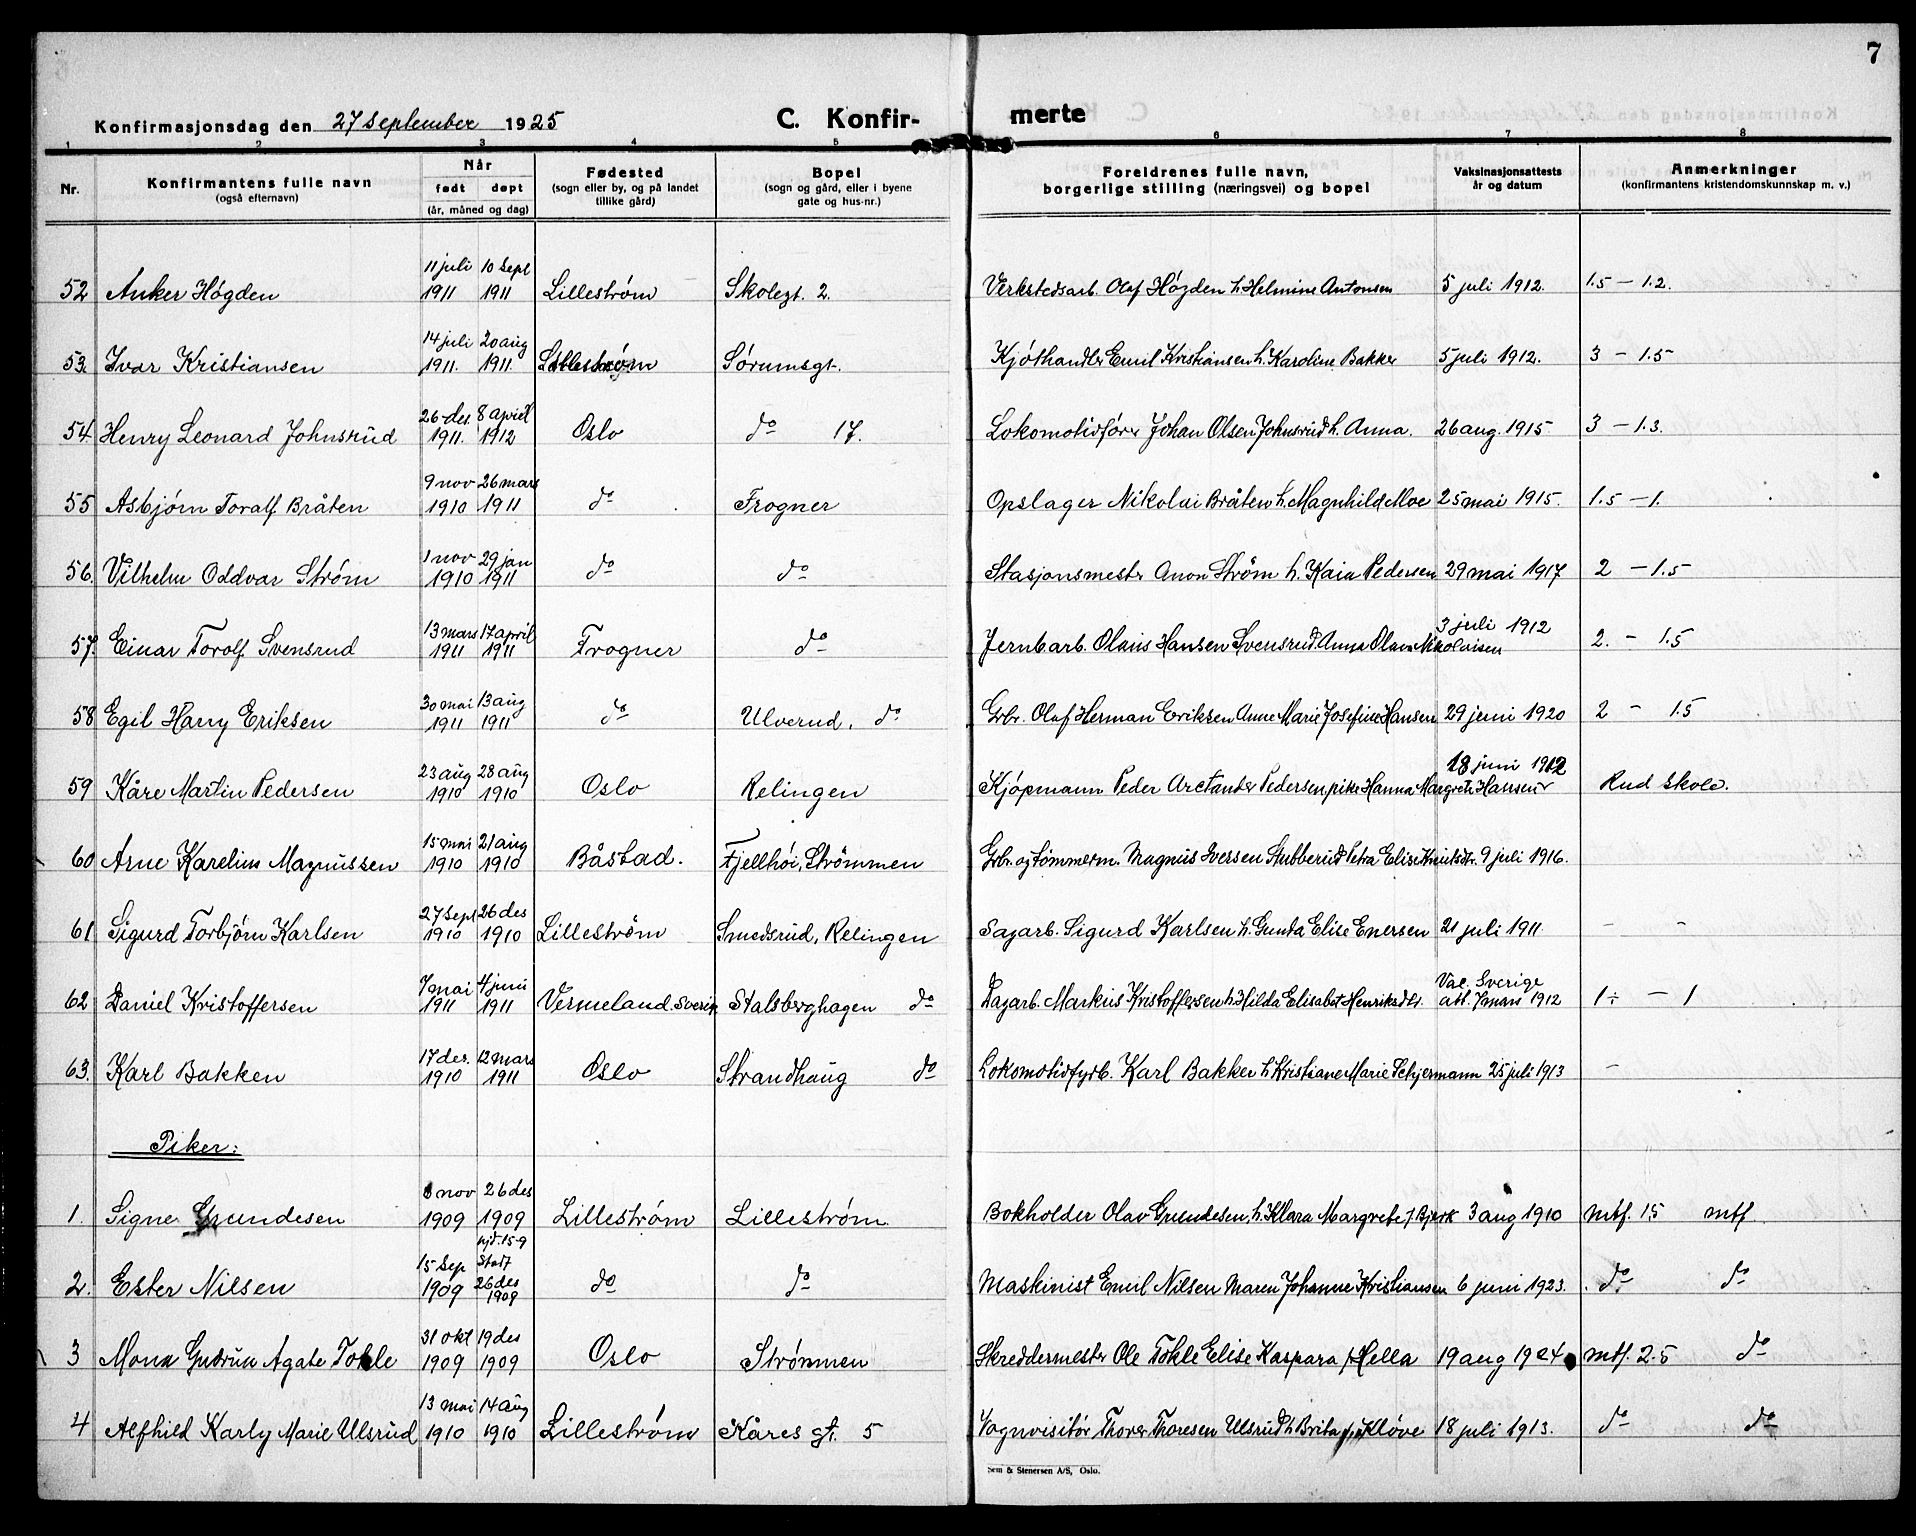 7
Konfirmasjonsdag den 27 September 1925 C. Konfir- merte
1 2 3 4 5 6 7 8
Nr. Konfirmantens fulle navn (også efternavn) Når født døpt (år, måned og dag) Fødested (sogn eller by, og på landet tillike gård) Bopel (sogn og gård, eller i byene gate og hus-nr.) Foreldrenes fulle navn, borgerlige stilling (næringsvei) og bopel Vaksinasjonsattests år og datum Anmerkninger (konfirmantens kristendomskunnskap m. v.)
52 Anker Høgden 11 juli 1911 10 Sept 1911 Lillestrøm Skolegt. 2. Verkstedsarb. Olaf Høgden h. Helmine Antonsen 5 juli 1912. 1.5 – 1.2.
53. Ivar Kristiansen 14 juli 1911. 20 aug 1911. Lillestrøm Sørumsgt. Kjøthandler Emil Kristiansen h. Karoline Bakker 5 juli 1912. 3 – 1.5
54. Henry Leonard Johnsrud 26 des. 1911. 8 april 1912 Oslo do 17. Lokomotivfører Johan Olsen Johnsrud h. Anna. 26 aug. 1915. 3 – 1.3.
55 Asbjørn Toralf Bråten 9 nov 1910 26 mars 1911 do Frogner Opslager Nikolai Bråten h. Magnhild Moe 25 mai 1915. 1.5 – 1.
56. Vilhelm Oddvar Strøm 1 nov 1910 29 jan 1911 do do Stasjonsmester Anon Strøm h. Kaia Pedersen 29 mai 1917 2 – 1.5
57. Einar Torolf Svensrud 13 mars 1911 17 april 1911 Frogner do Jernbarb. Olaus Hansen Svensrud. Anna Olava Nikolaisen 3 juli 1912 2. – 1.5
58 Egil Harry Eriksen 30 mai 1911 13 aug 1911 do Ulverud, do Gbr. Olaf Herman Eriksen Anne Marie Josefine Hansen 29 juni 1920 2 – 1.5
59 Kåre Martin Pedersen 23 aug 1910 28 aug 1910 Oslo Relingen Kjøpmann Peder Arctander Pedersen pike Hanna Margrete Hansen 18 juni 1912 Rud skole.
60 Arne Karelius Magnussen 15 mai 1910 21 aug 1910 Båstad. Fjellhøi, Strømmen Gbr. og Tømmerm. Magnus Iversen Stubberud Petra Elise Knutsdtr. 9 juli 1916.
61 Sigurd Torbjørn Karlsen 27 Sept 1910 26 des 1910 Lillestrøm Smedsrud, Relingen Sagarb. Sigurd Karlsen h. Gunda Elise Enersen 21 juli 1911 – –
62 Daniel Kristoffersen 7 mai 1911 4 juni 1911 Vermeland. Sverige Stalsberghagen do Dagarb. Markus Kristoffersen h. Hilda Elisabet Henriksdtr. Vac. Sverige att. 7 mars 1912 1÷ – 1
63. Karl Bakken 17 des. 1910 12 mars 1911 Oslo Strandhaug do Lokomotivfyrb. Karl Bakker h. Kristiane Marie Schjermann 25 juli 1913 –
Piker:
1. Signe Grundesen 8 nov 1909 26 des 1909 Lillestrøm Lillestrøm Bokholder Olav Grundesen, h. Klara Margrete f. Bjerk 3 aug 1910 mtf. 1.5 mtf.
2. Ester Nilsen 15 Sep 1909 hjd. 15-9 Stadf 26 des 1909 do do Maskinist Emil Nilsen Maren Johanne Kristiansen 6 juni 1923. do do
3 Mona Gudrun Agate Tokle 31 okt 1909 19 des 1909 Oslo Strømmen Skreddermester Ole Tokle Elise Kaspara f. Hella 19 aug 1924 mtf. 2.5 do
4 Alfhild Karly Marie Ulsrud 13 mai 1910 14 aug 1910 Lillestrøm Kåres gt. 5 Vognvisitør Thorer Thoresen Ulsrud h Brita Kløve 18 juli 1913. do do
Sem & Stenersen A/S, Oslo.